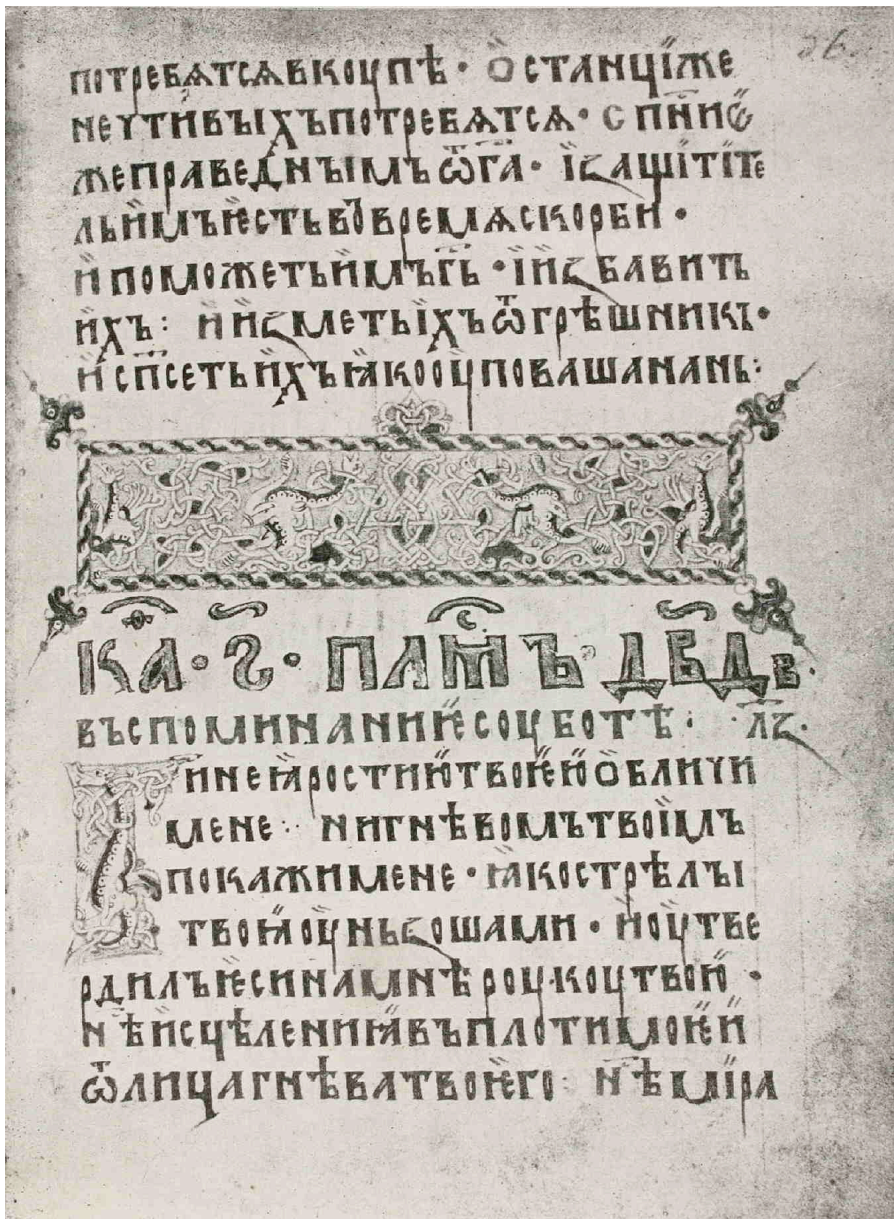 потребѧтсѧвкоупѣ · ѻстанцїже
неѵтивъıхъпотребѧтсѧ · спн҃иѥ
жеправеднъıмъѿг҃а · їꙁащїтїте
льимъѥстьвовремѧскорби ·
ипоможетьимъг҃ь · їиꙁбавить
ихъ : иизметьїхъѿгрѣшникъ ·
исп҃сетьихъꙗкооуповашанань :
ка҃ · г҃ · пам҃ъ дв҃дв ·
въспоминаниѥсоуботѣ · л҃ꙁ ·
гинеꙗростиютвоѥюѻбличи
мене · нигнѣвомътвоїмъ
покажимене · ꙗкострѣлъı
твоꙗоуньꙁошами · иоутве
рдилъѥсинамнѣроукоутвою ·
нѣисцѣлениꙗвъплотимоѥи
ѿлицагнѣватвоѥго : нѣмїра